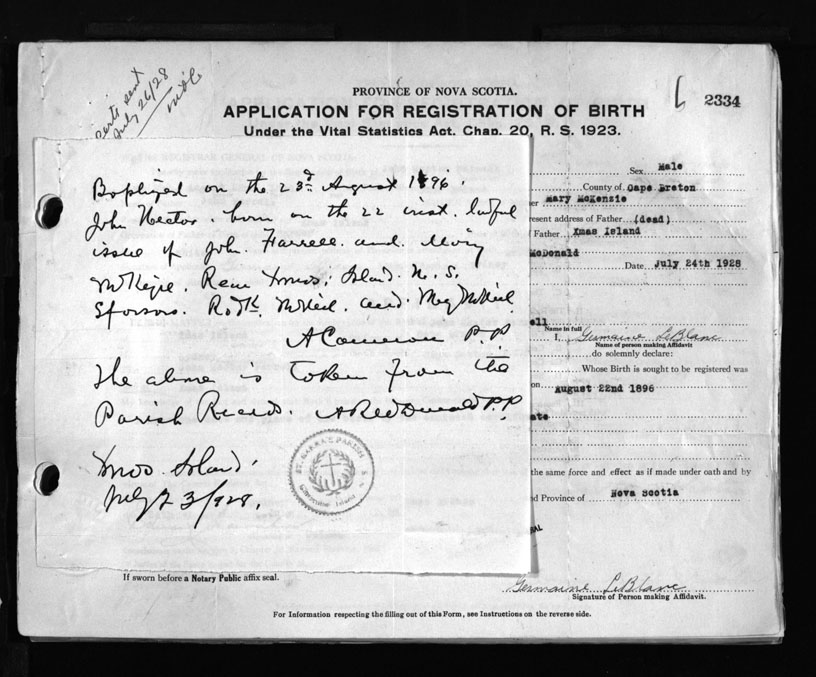 certs sent
July 26/28
PROVINCE OF NOVA SCOTIA.
2334
APPLICATION FOR REGISTRATION OF BIRTH
Under the Vital Statistics Act. Chap. 20, R. S. 1923.
Baptized on the 23rd August 1896.
John Hector. born on the 22 inst. lawful
issue of John. Farrell and. Mary
McKezie. Rear Xmas. Island. N. S.
Sponsors. Rodk. McNeil. and. Meg McNeil
A Cameron P.P.
The above is taken from the
Parish Records. A R McDonald P.P.
Xmas. Island.
July 23/928.
ST. BARRA'S PARISH
Christmas Island
Sex Male
County of Cape Breton
er Mary McKenzie
resent address of Father (dead)
Father Xmas Island
McDonald
Date July 24th 1928
ell
Name in full
I, Germaine LeBlanc
Name of person making Affidavit
do solemnly declare:
Whose Birth is sought to be registered was
on August 22nd 1896
ate
the same force and effect as if made under oath and by
d Province of Nova Scotia
If sworn before a Notary Public affix seal.
Germaine LeBlanc
Signature of Person making Affidavit.
For Information respecting the filling out of this Form, see Instructions on the reverse side.